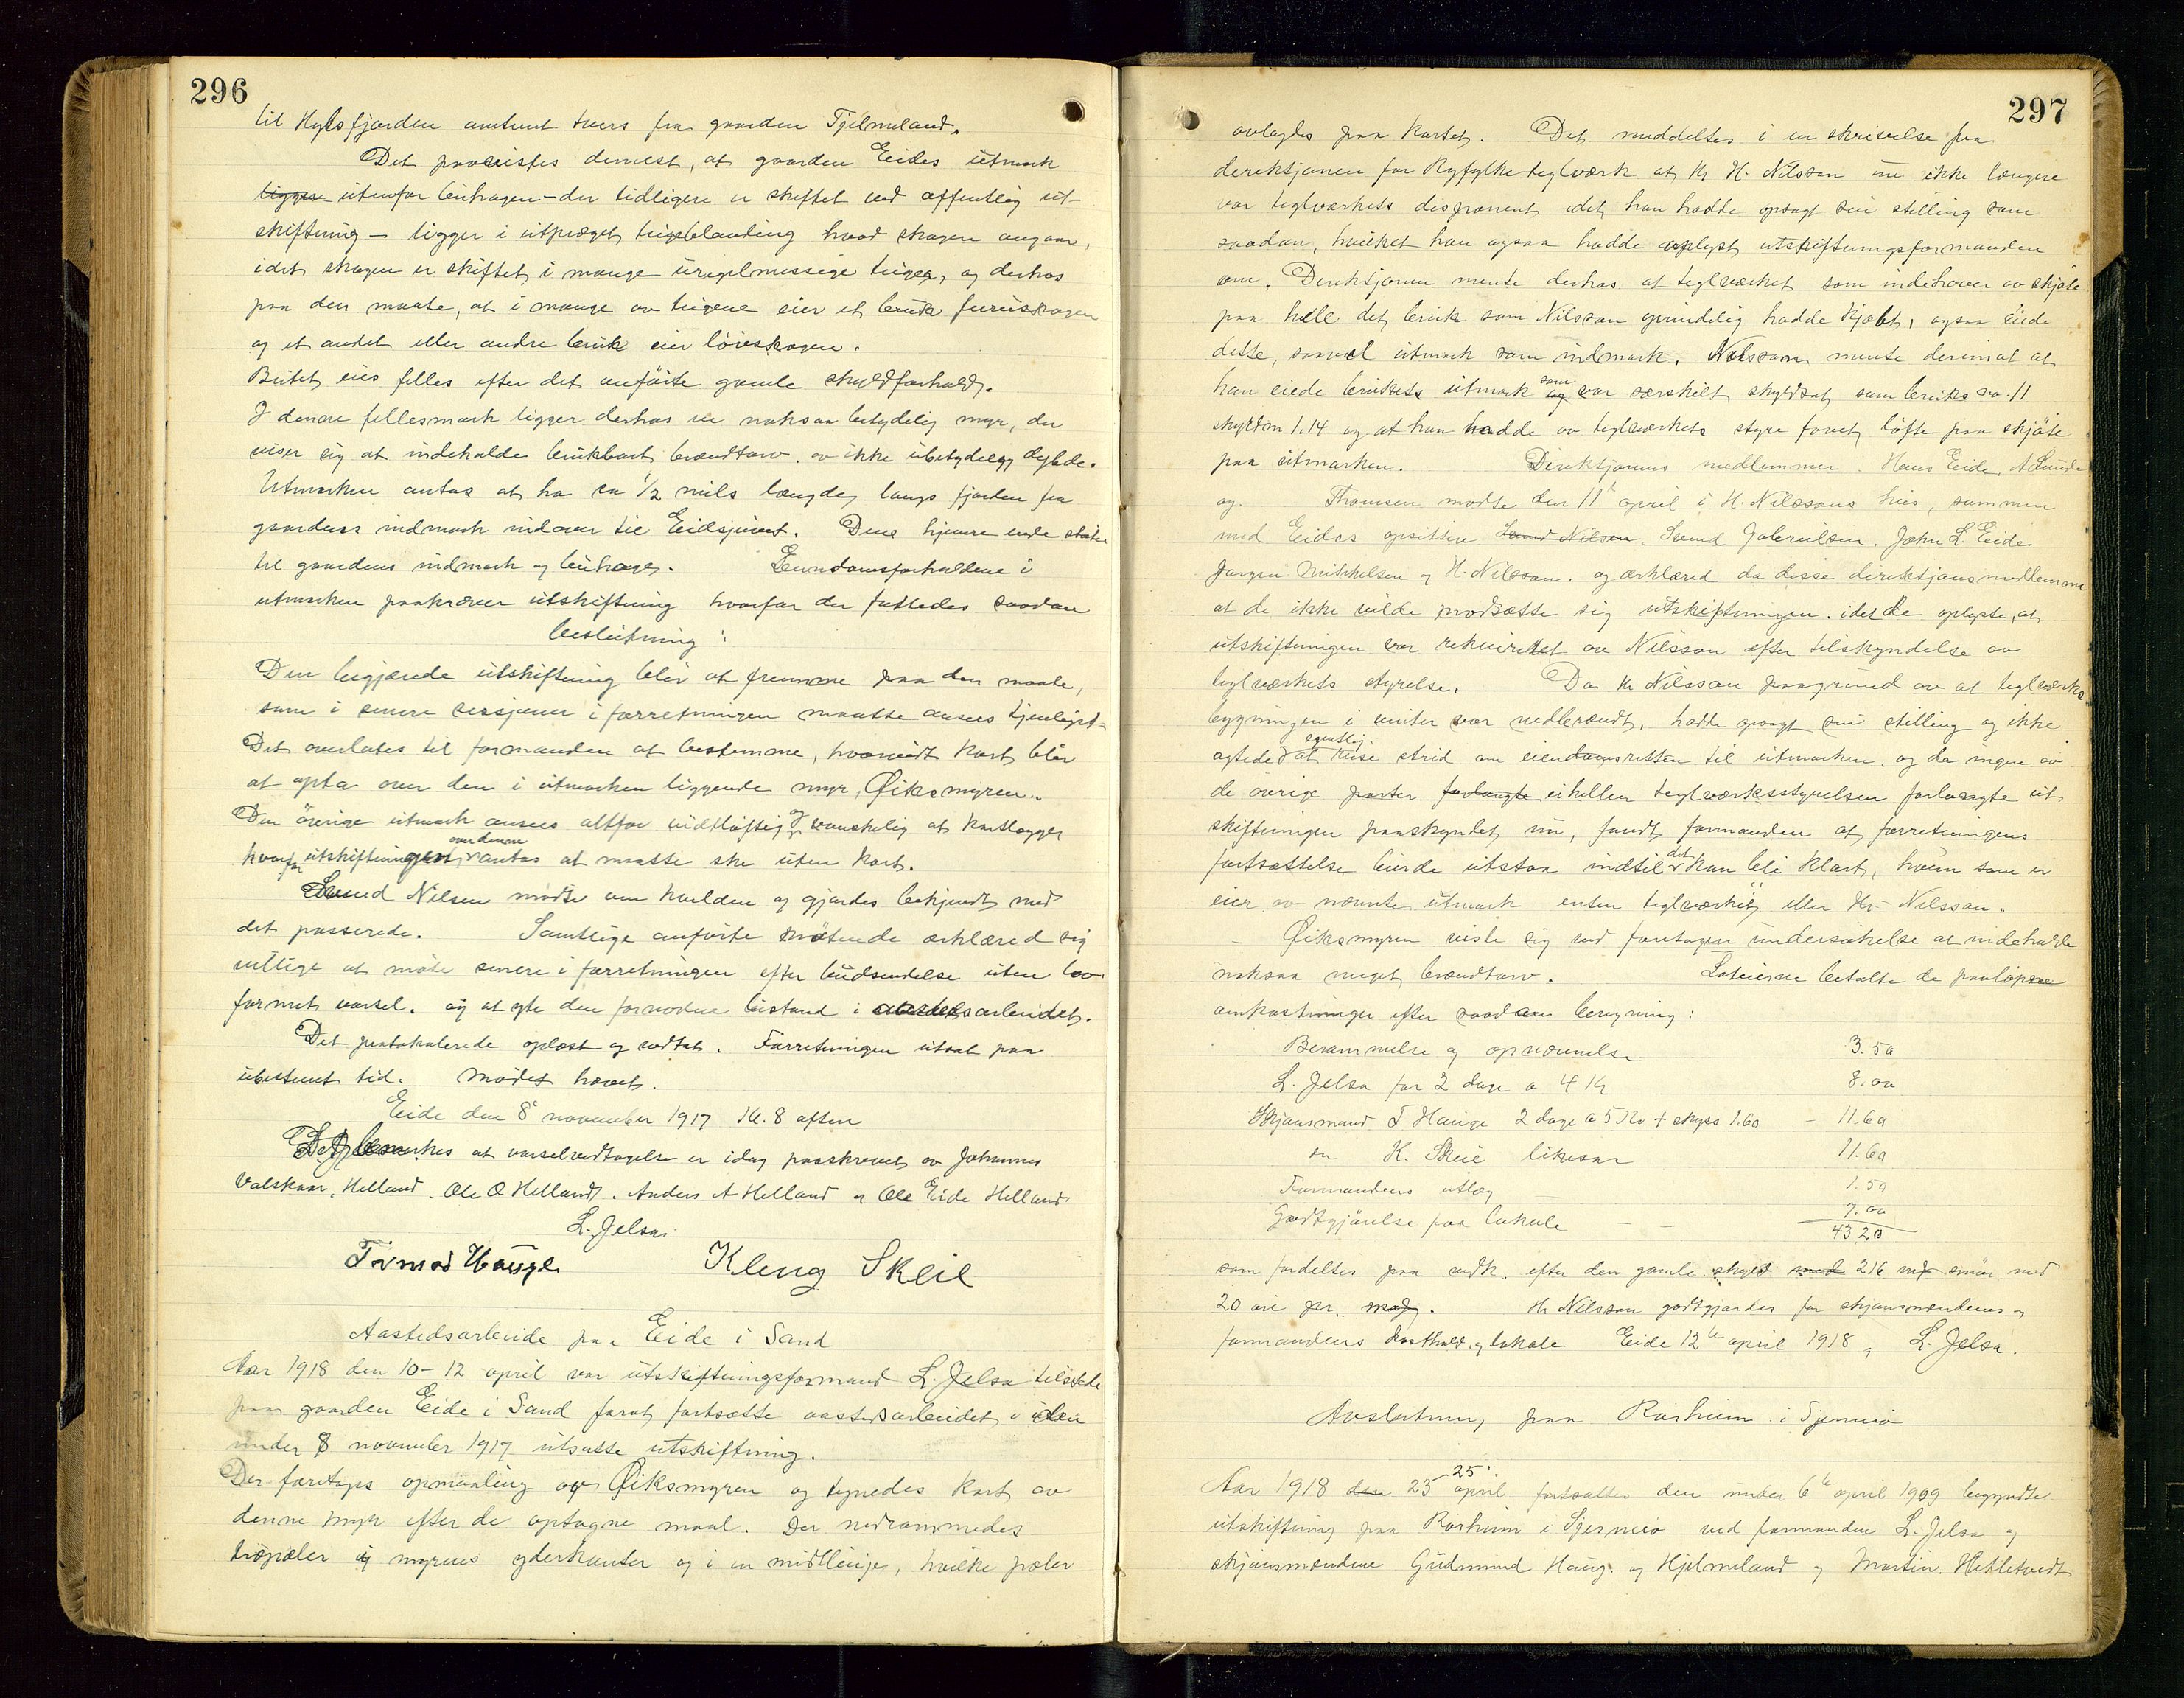 296
til Hylsfjorden omtrent tvers fra gaarden Tjelmeland.
Det paavistes dernest, at gaarden Eides utmark
ligger utenfor buhagen – der tidligere er skiftet ved offentlig ut-
skiftning – ligger i utpræget teigeblanding hvad skogen angaar,
idet skogen er skiftet i mange uregelmessige teiger, og derhos
paa den maate, at i mange av teigene eier et bruk furuskogen
og et andet eller andre bruk eier løvskogen.
Beitet eies felles efter det anførte gamle skyldforhold.
I denne fellesmark ligger derhos en noksaa betydelig myr, der
viser sig at indeholde brukbart brændtorv av ikke ubetydelig dybde.
Utmarken antas at ha ca 1/2 mils længde langs fjorden fra
gaardens indmark indover til Eidsjuvet. Dens hjemre ende støter
til gaardens indmark og buhage. Eiendomsforholdene i
utmarken paakræver utskiftning hvorfor der fattedes saadan
beslutning:
Den begjærede utskiftning blir at fremme paa den maate,
som i senere sessjoner i forretningen maatte ansees tjenligst.
Det overlates til formanden at bestemme, hvorvidt kart blir
at opta over den i utmarken liggende myr, Øiksmyren.
Den øvrige utmark ansees altfor vidtløftig og vanskelig at kartlægge
hvorfor utskiftningen over denne antas at maatte ske uten kart.
Svend Nilsen mødte om kvelden og gjordes bekjendt med
det passerede. Samtlige anførte møtende erklæred sig
villige at møte senere i forretningen efter budsendelse uten lov-
formet varsel. og at yte den fornødne bistand i aastedsarbeidet.
Det protokolerede oplæst og vedtat. Forretningen utsat paa
ubestemt tid. Mødet hævet.
Eide den 8 november 1917 kl. 8 aften
Det bemerkes at varselvedtagelse er idag paaskrevet av Johannes
Valskaar, Helland. Ole O Helland. Anders A Helland og Ole Eide Helland
L. Jelsa.
Tormod Hauge Kleng Skeie
Aastedsarbeide paa Eide i Sand
Aar 1918 den 10–12 april var utskiftningsformand L. Jelsa tilstede
paa gaarden Eide i Sand forat fortsætte aastedsarbeidet i den
under 8 november 1917 utsatte utskiftning.
Der foretoges opmaaling av Øiksmyren og tegnedes kart av
denne myr efter de optagne maal. Der nedrammedes
træpæler i myrens yderkanter og i en midtlinje, hvilke pæler
297
avlagdes paa kartet. Det meddeltes i en skrivelse fra
direktjonen for Ryfylke teglværk at Hr H. Nilsson nu ikke længere
var teglværkets disponent idet han hadde opsagt sin stilling som
saadan, hvilket han ogsaa hadde oplyst utskiftningsformanden
om. Direktjonen mente derhos at teglværket som indehaver av skjøte
paa hele det bruk som Nilsson oprindelig hadde kjøbt, ogsaa eiede
dette, saavel utmark som indmark. Nilsson mente derimot at
han eiede brukets utmark og som var særskilt skyldsat som bruks no. 11
skyldm 1.14 og at han hadde av teglværkets styre faaet løfte paa skjøte
paa utmarken. Direktjonens medlemmer. Hans Eide, A Lunde
og Thomsen mødte den 11te april i H. Nilssons hus, sammen
med Eides opsittere Svend Nilsen Svend Gabrielsen. John L. Eide
Jørgen Mikkelsen og H. Nilsson. og erklæred da disse direktjonsmedlemmer
at de ikke vilde modsætte sig utskiftningen. idet de oplyste, at
utskiftningen var rekvireret av Nilsson efter tilskyndelse av
teglværkets styrelse. Da Hr Nilsson paagrund av at teglværks-
bygningen i vinter var nedbrændt, hadde opsagt sin stilling og ikke
agtede egentlig at reise strid om eiendomsretten til utmarken. og da ingen av
de øvrige parter forlangte eiheller teglværksstyrelsen forlangte ut-
skiftningen paaskyndet nu, fandt formanden at forretningens
fortsættelse burde utstaa indtil det kan bli klart, hvem som er
eier av nævnte utmark enten teglværket eller Hr. Nilsson.
– Øiksmyren viste sig ved foretagen undersøkelse at indeholde
noksaa meget brændtorv. Loteierne betalte de paaløpne
omkostninger efter saadan beregning:
Berammelse og opnævnelse 3.50
L. Jelsa for 2 dage a 4 Kr 8.00
Skjønsmand T Hauge 2 dage a 5 Kr + skyss 1.60 – 11.60
do K. Skeie likesaa 11.60
Formandens utlæg 1.50
Godtgjørelse for lokale – – 7.00
43 20
som fordeltes paa vedk. efter den gamle skyld 216 mk smør med
20 øre pr. mk. Hr Nilsson godtgjordes for skjønsmændenes og
formandens kosthold og lokale Eide 12te april 1918, L. Jelsa.
Avslutning paa Rørheim i Sjernarø
Aar 1918 den 23–25 april fortsattes den under 6te april 1909 begyndte
utskiftning paa Rørheim i Sjernarø ved formanden L. Jelsa og
skjønsmændene Gudmund Haug. og Hjelmeland og Martin Hetletvedt